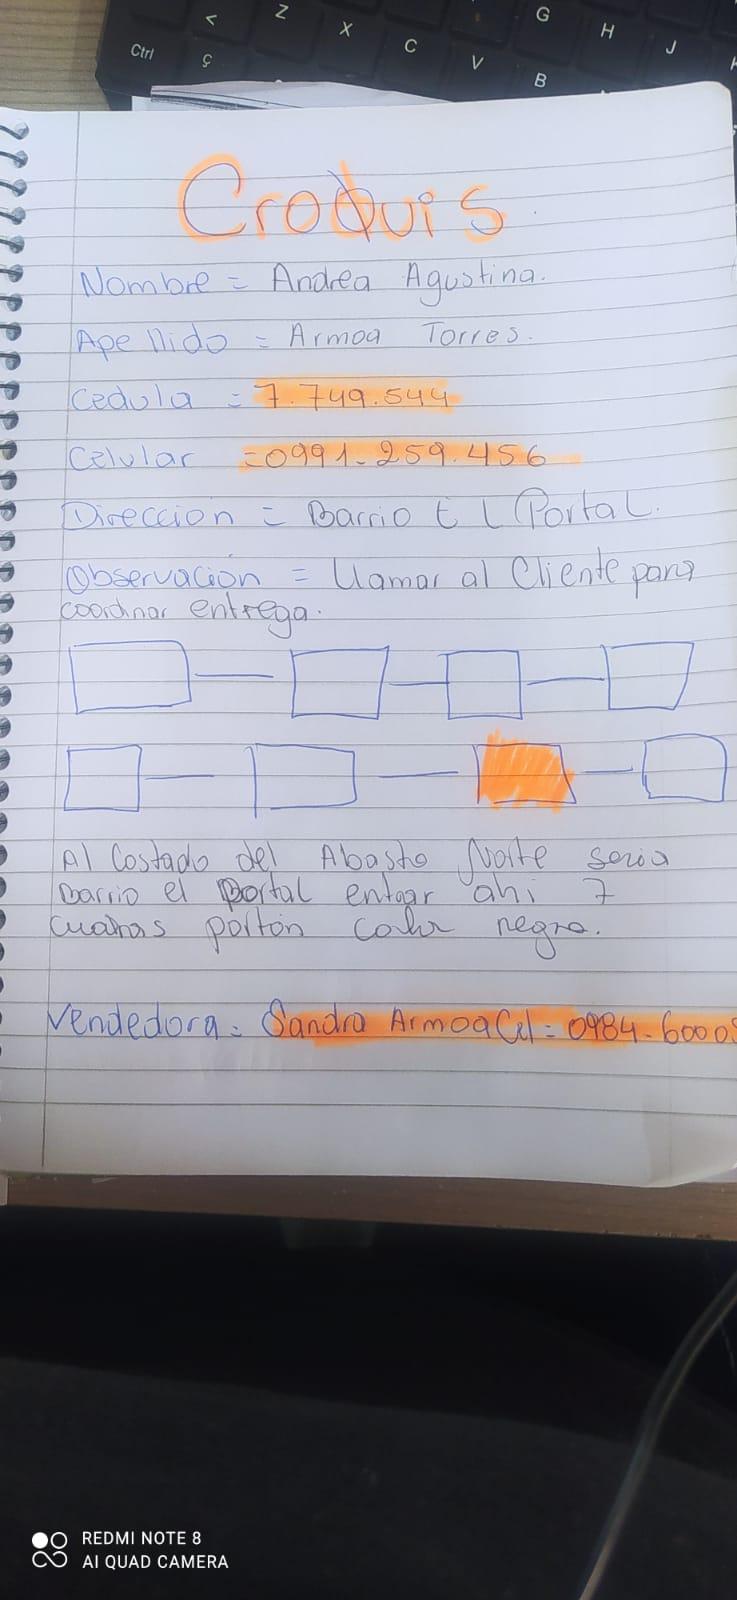 Ctrl < Z X C V B G H J
ç
Croquis
Nombre = Andrea Agustina.
Apellido = Armoa Torres.
Cedula = 7.749.544
Celular = 0991-259.456
Direccion = Barrio El Portal.
Observación = Llamar al Cliente para
coordinar entrega.
Al Costado del Abasto Norte seria
Barrio el Portal entrar ahi 7
cuadras portón color negro.
Vendedora = Sandra Armoa Cel = 0984-6000
REDMI NOTE 8
AI QUAD CAMERA